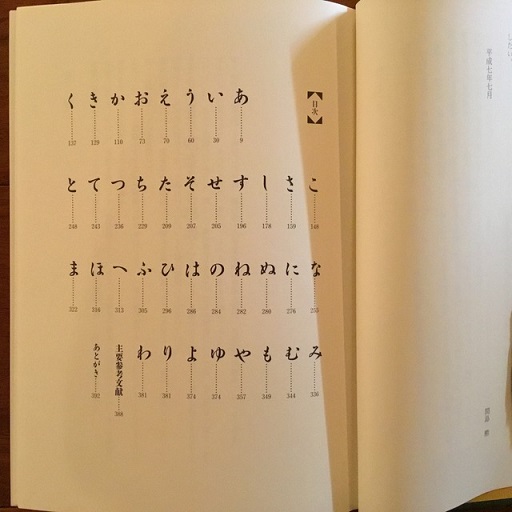 平成七年七月
【目次】
あ………9
い………39
う………60
え………70
お………73
か………110
き………129
く………137
こ………148
さ………159
し………178
す………196
せ………205
そ………207
た………209
ち………229
つ………236
て………243
と………248
な………255
に………276
ぬ………280
ね………282
の………284
は………288
ひ………296
ふ………305
へ………313
ほ………316
ま………322
み………336
む………344
も………349
や………357
ゆ………374
よ………374
り………381
わ………381
主要参考文献…388
あとがき…392